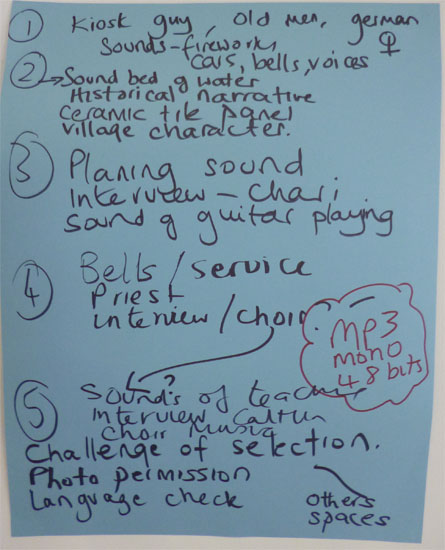 ① Kiosk guy, Old men, german ♀
Sounds-fireworks
cars, bells, voices
② → Sound bed of water
Historical narrative
Ceramic tile panel
Village character.
③ Planing sound
Interview - Chari
Sound of guitar playing
④ Bells / service
Priest
interview / choir?
MP3
mono
48 bits
⑤ Sound's? of
Interview
Choir Music
Challenge of selection.
Photo permission
Language check
others
spaces